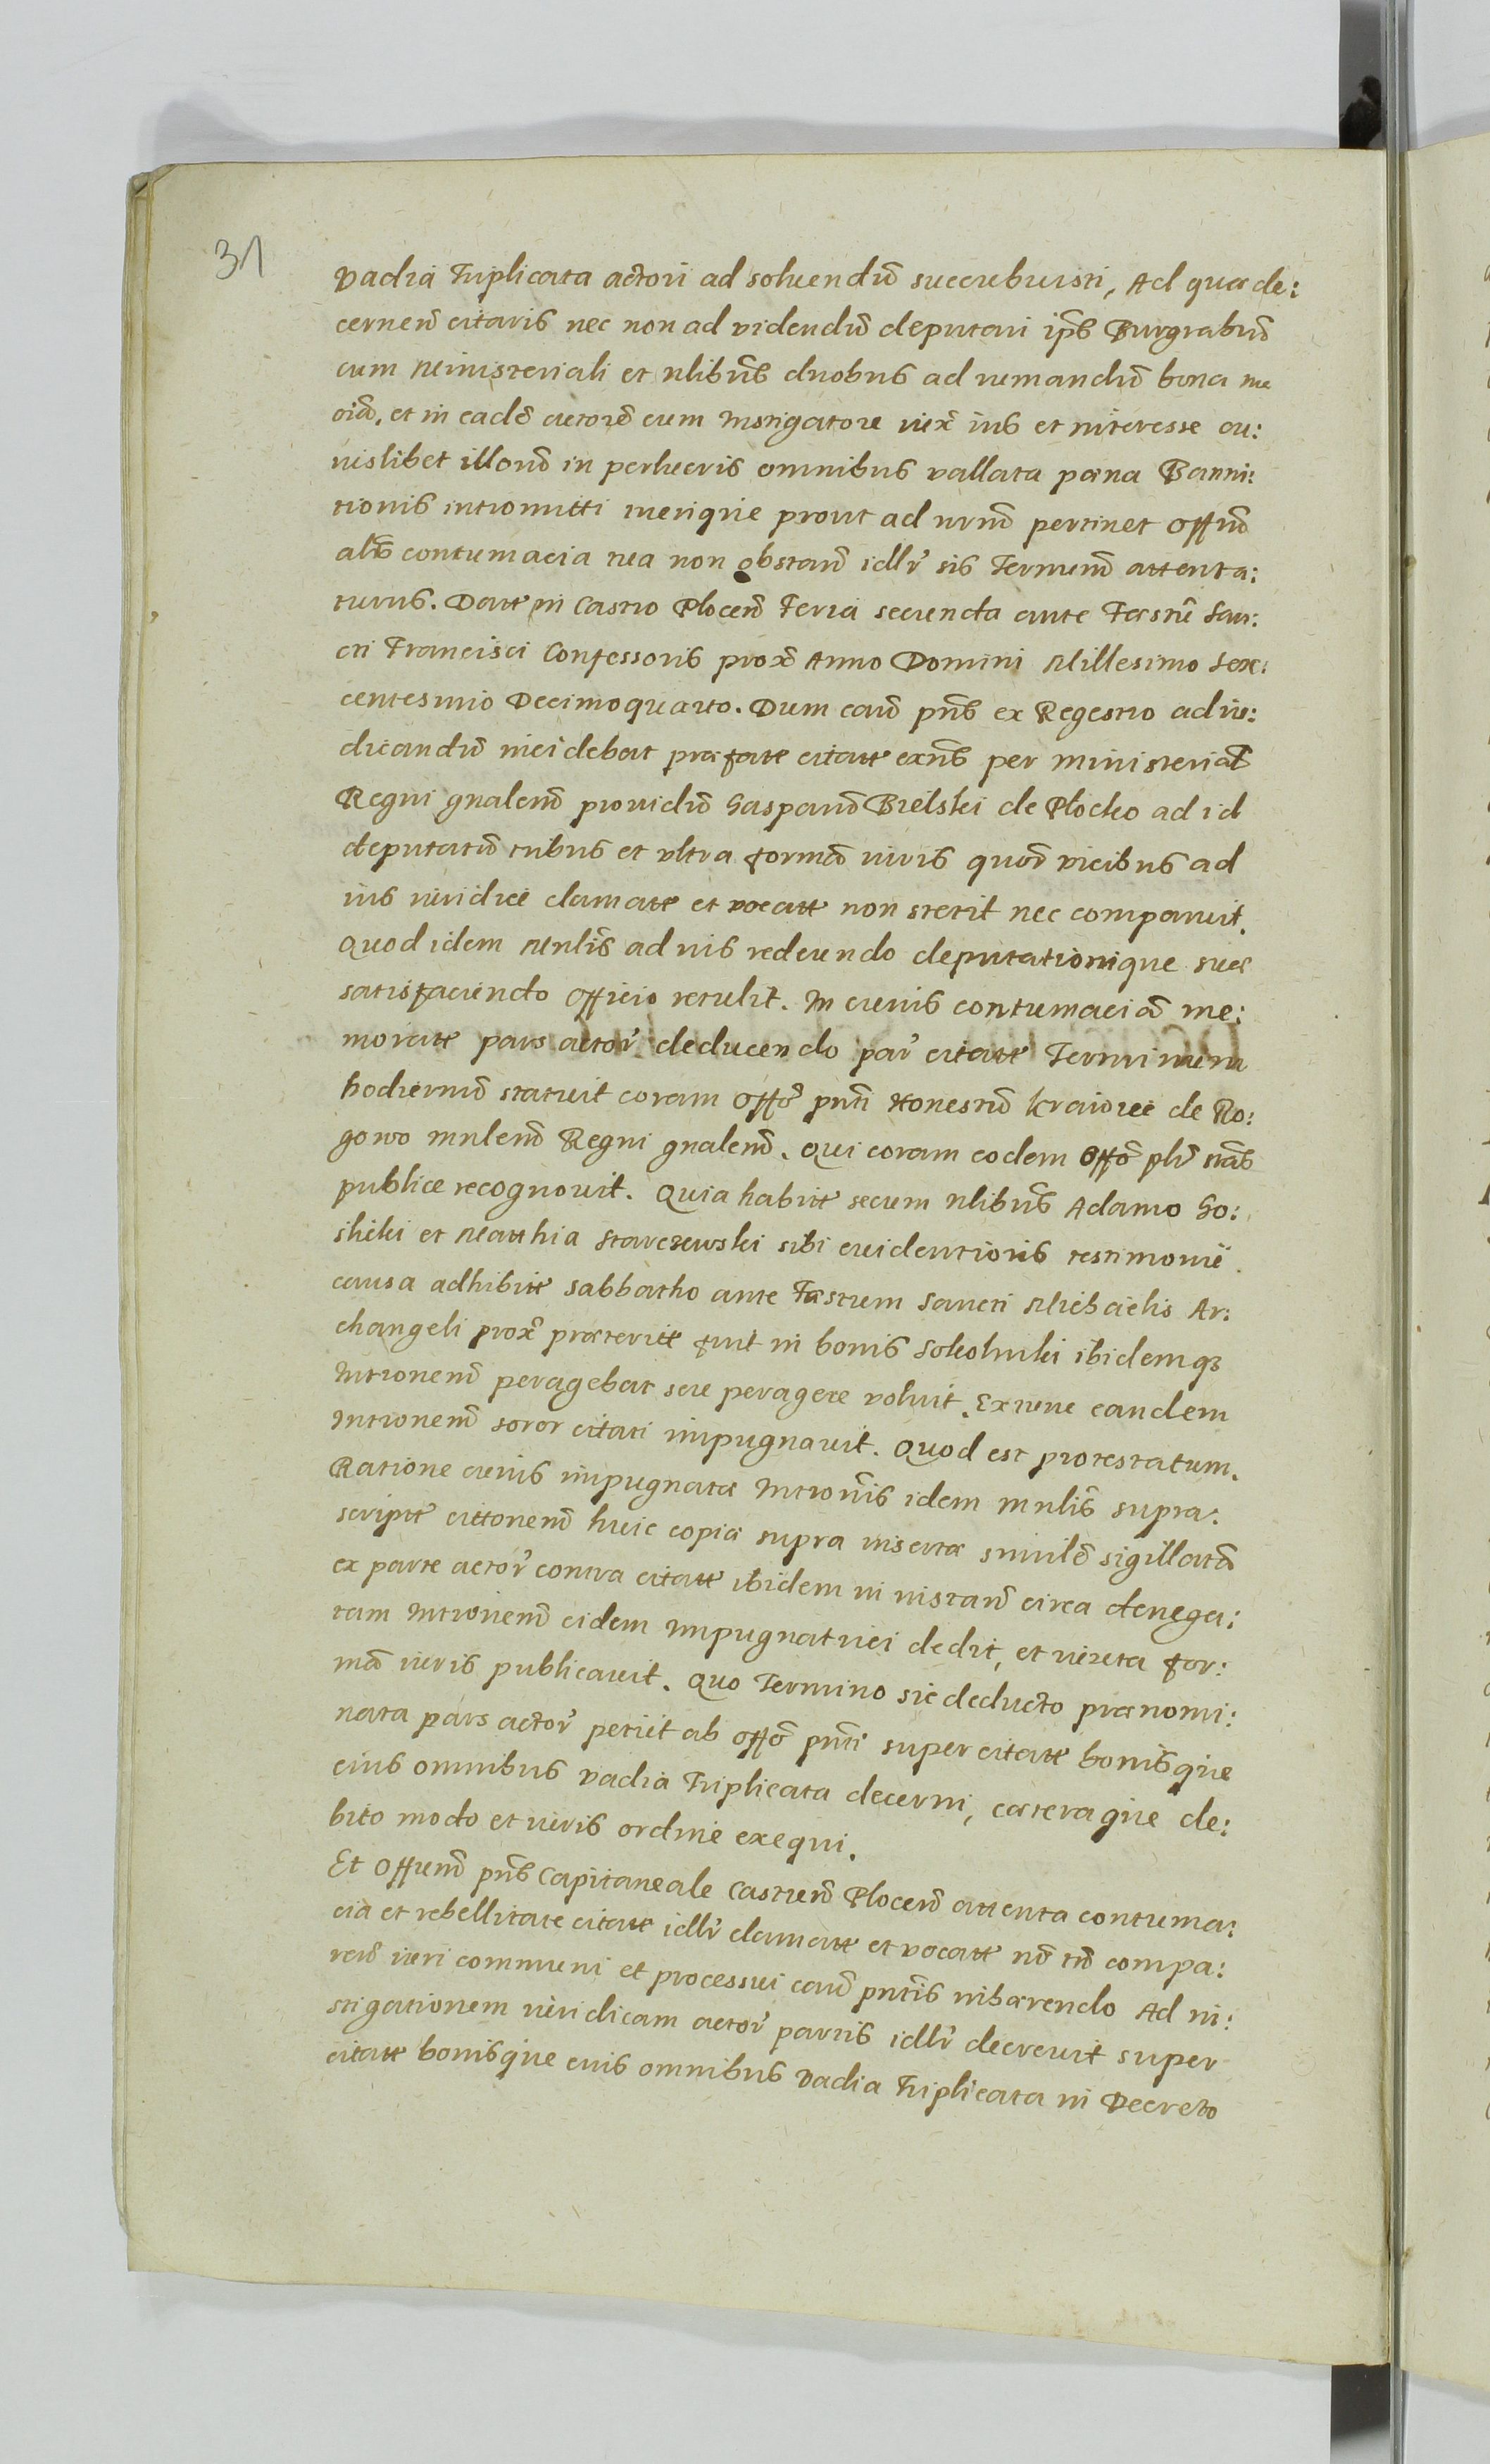 31
Vadia Triplicata actori ad soluendũ succubuisti, Ad quæ de:
cernenꝺ̃ citaris nec non ad videndũ deputari ip̃ũ Burgrabiũ
cum Ministeriali et nlibũs duobus ad rumandũ bona
et in eadẽ actorẽ cum Instigatore iux̃ ius et interesse cu:
iuslibet illorũ in perlucris omnibus vallata pæna Banni:
tionis intromitti iuerique prout ad vrũm pertinet offũm
al̃s contumacia tua non obstanṽ idl̃r sis Terminũ attenta:
turus. Datt in Castro Plocen̄ Feria secunda ante Festũ San:
cti Francisci Confessoris prox̃ Anno Domini Millesimo Sex:
centesimo Decimoquarto. Dum cauṽ pñs ex Regestro ad iu:
dicandũ incidebat præfatt citatt exñs per ministeriał
Regni gñalem̃ prouidũ Gasparũ Bielski de Plocko ad id
deputatũ tribus et vltra formã iuris quor̃ vicibus ad
ius iuridice clamatt et vocatt non stetit nec comparuit.
Quod idem Mnlĩs ad ius redeundo deputationique suæ
satisfaciendo Officio retulit. In cuius contumaciã me:
moratt pars actor̃ deducendo par̃ citatt Terminum
hodiernũ statuit coram Offõ pñti Honestũ Krawiec de Ro:
gowo mnlem̃ Regni gñalem̃. Qui coram eodem Offõ pl̃r stãs
publice recognouit. Quia habitt secum nlibũs Adamo So:
skiki et Matthia Starczewski sibi euidentioris testimonii
causa adhibitt Sabbatho ante Festum Sancti Michaelis Ar:
changeli prox̃ præteritt fuit in bonis Sokolniki ibidemqʒ
Intromem̃ peragebat seu peragere voluit. Ex tunc eandem
Intromem̃ soror citati impugnauit. Quod est protestatum.
Ratione cuius impugnatæ Intromĩs idem mnlĩs supra:
scriptt cittonem̃ huic copiæ supra insertæ similẽ sigillatã
ex parte actor̃ contra citatt ibidem in instanṽ circa denega:
tam Intromem̃ eidem Impugnatrici dedit, et iuxta for:
mã iuris publicauit. Quo Termino sic deducto prænomi:
nata pars actor̃ petiit ab offõ pñti super citatt bonisque
eius omnibus vadia Triplicata decerni, cæteraque de:
bito modo et iuris ordine exequi.
Et Offium̃ pñs Capitaneale Castren̄ Plocen̄ attenta contuma:
cia et rebellitate citatt idl̃r clamatt et vocatt nõ tñ compa:
ren̄ iuri communi et processui cauṽ pñtis inhærendo Ad in:
stigationem iuridicam actor̃ partis idl̃r decreuit super
citatt bonisque eius omnibus Vadia Triplicata in Decreto